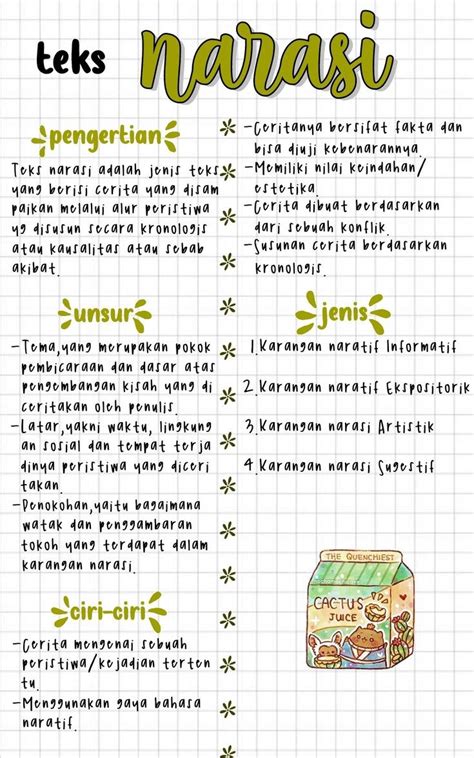 teks narasi
pengertian
Teks narasi adalah jenis teks
yang berisi cerita yang disam
paikan melalui alur peristiwa
yg disusun secara kronologis
atau kausalitas atau sebab
akibat.
unsur
-Tema,yang merupakan pokok
pembicaraan dan dasar atas
pengembangan kisah yang di
ceritakan oleh penulis.
-Latar,yakni waktu, lingkung
an sosial dan tempat terja
dinya peristiwa yang diceri
takan.
-Penokohan,yaitu bagaimana
watak dan penggambaran
tokoh yang terdapat dalam
karangan narasi.
ciri-ciri
-Cerita mengenai sebuah
peristiwa/kejadian terten
tu.
-Menggunakan gaya bahasa
naratif.
-Ceritanya bersifat fakta dan
bisa diuji kebenarannya.
-Memiliki nilai keindahan/
estetika.
-Cerita dibuat berdasarkan
dari sebuah konflik.
-Susunan cerita berdasarkan
kronologis.
jenis
1.Karangan naratif Informatif
2.Karangan naratif Ekspositorik
3.Karangan narasi Artistik
4.Karangan narasi Sugestif
THE QUENCHIEST
CACTUS
JUICE